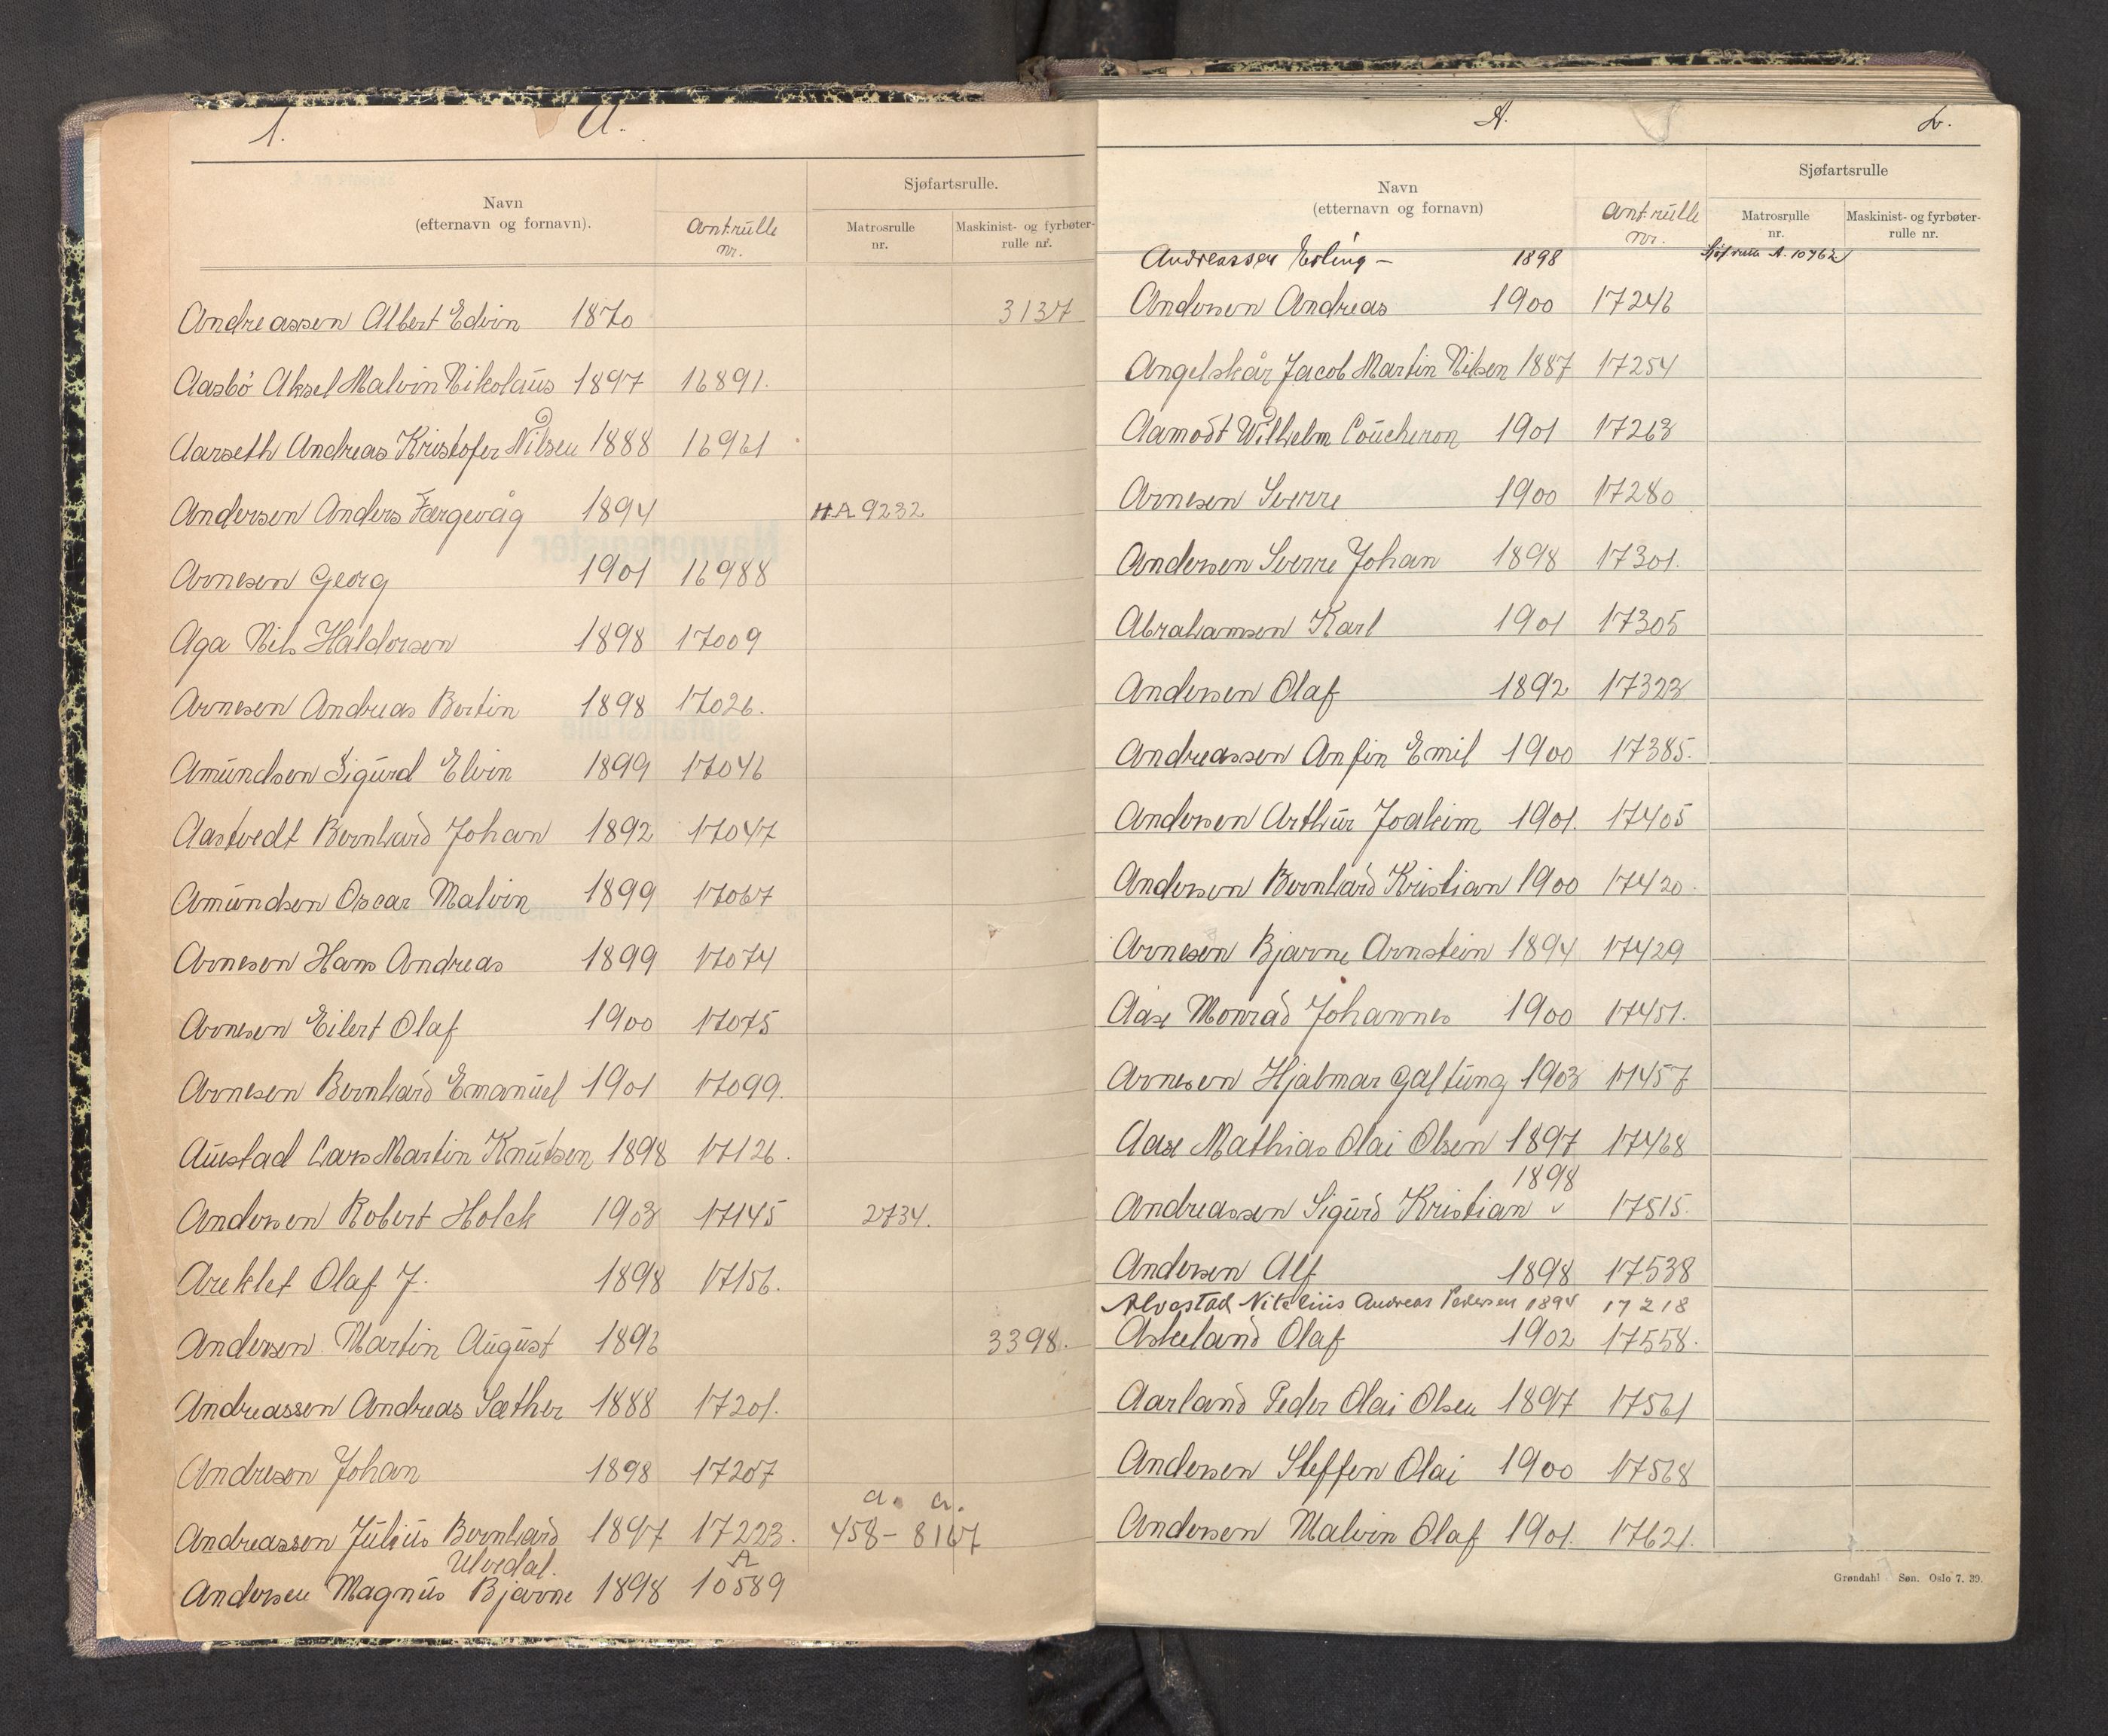 1. A.
Sjøfartsrulle.
Navn
(efternavn og fornavn).
Antrulle
nr.
Matrosrulle
nr.
Maskinist- og fyrbøter-
rulle nr.
Andreassen Albert Edvin 1870 3137
Aasbö Aksel Malvin Nikolaus 1897 16891.
Aarseth Andreas Kristofer Nilsen 1888 16961
Andersen Anders Færgevåg 1894 H.A 9232
Arnesen Georg 1901 16988
Aga Nils Haldorsen 1898 17009
Arnesen Andreas Bertin 1898 17026.
Amundsen Sigurd Elvin 1899 17046
Aastvedt Bernhard Johan 1892 17047
Amundsen Oscar Malvin 1899 17067
Arnesen Hans Andreas 1899 17074
Arnesen Eilert Olaf 1900 17075
Arnesen Bernhard Emanuel 1901 17099.
Austad Lars Martin Knutsen 1898 17126.
Andersen Robert Holck 1903 17145 2734.
Areklet Olaf J. 1898 17156.
Andersen Martin August 1896 3398.
Andreassen Andreas Sæther 1888 17201.
Andresen Johan 1898 17207
a. a.
Andreassen Julius Bernhard 1897 17223. 458- 8167
Ulvedal. A
Andersen Magnus Bjarne 1898 10589
A. 2.
Sjøfartsrulle
Navn
(etternavn og fornavn)
Antrulle
nr.
Matrosrulle
nr.
Maskinist- og fyrbøter-
rulle nr.
Andreassen Erling - 1898 Sjøf.rulle A. 10762
Andersen Andreas 1900 17246
Angelskår Jacob Martin Nilsen 1887 17254
Aamodt Wilhelm Coucheron 1901 17263
Arnesen Sverre 1900 17280
Andersen Sverre Johan 1898 17301.
Abrahamsen Karl 1901 17305
Andersen Olaf 1892 17323
Andreassen Anfin Emil 1900 17385.
Andersen Arthur Joakim 1901. 17405
Andersen Bernhard Kristian 1900 17420.
Arnesen Bjarne Arnstein 1894 17429
Aase Monrad Johannes 1900 17451.
Arnesen Hjalmar Galtung 1903 17457
Aase Mathias Olai Olsen 1897 17468
1898
Andreassen Sigurd Kristian v 17515.
Andersen Alf 1898 17538
Alvestad Nikelius Andreas Pedersen 1894 17218
Askeland Olaf 1902 17558.
Aarland Peder Olai Olsen 1897 17561
Andersen Steffen Olai 1900 17568
Andersen Malvin Olaf 1901. 17621.
Grøndahl Søn. Oslo 7. 39.